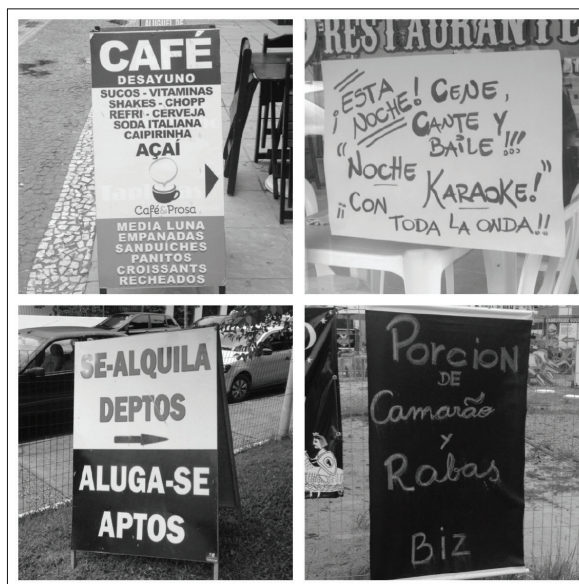 CAFÉ
DESAYUNO
SUCOS - VITAMINAS
SHAKES - CHOPP
REFRI - CERVEJA
SODA ITALIANA
CAIPIRINHA
AÇAÍ
Café&Prosa
MEDIA LUNA
EMPANADAS
SANDUICHES
PANITOS
CROISSANTS
RECHEADOS
RESTAURANTE
¡ESTA
NOCHE! CENE,
CANTE Y
BAILE!!!
"NOCHE
KARAOKE!"
¡¡CON
TODA LA ONDA!!
SE-ALQUILA
DEPTOS
ALUGA-SE
APTOS
PORCION
DE
Camarão
y
Rabas
BIZ